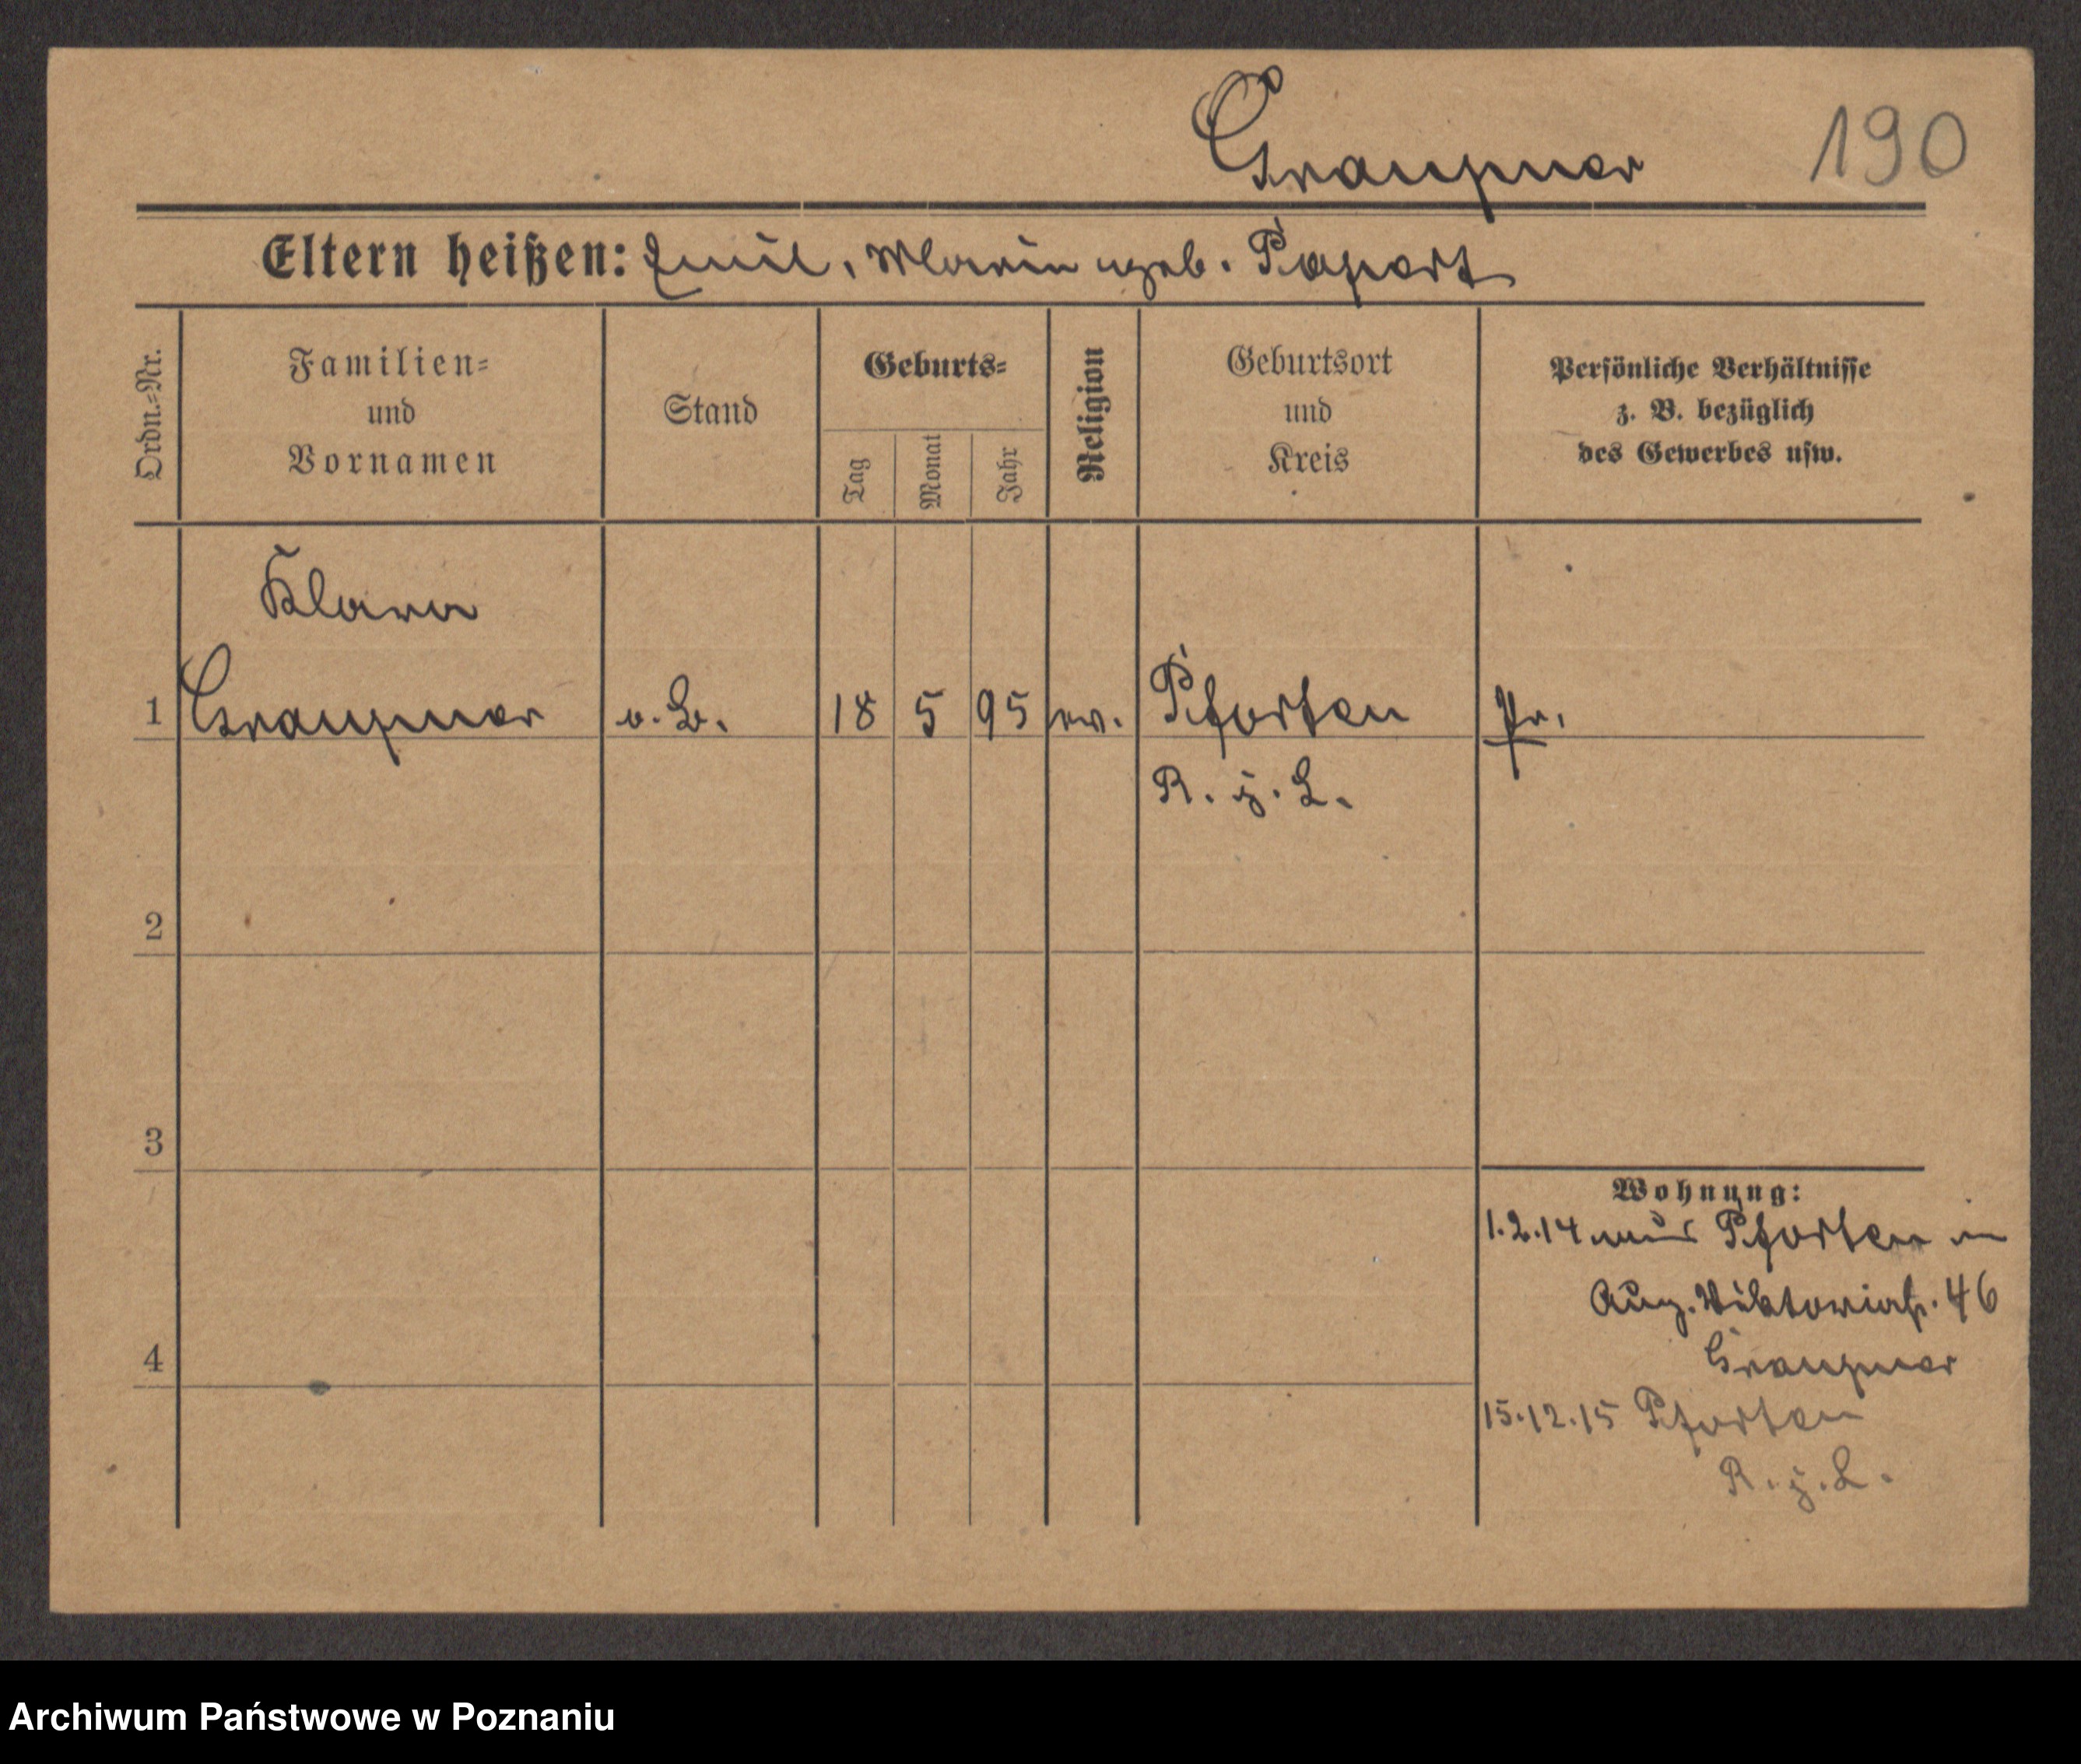 Graupner
190
Eltern heißen: Emil, Marie geb. Papert
Ordn.=Nr.
Familien=
und
Vornamen
Stand
Geburts=
Tag
Monat
Jahr
Religion
Geburtsort
und
Kreis
Persönliche Verhältnisse
z. B. bezüglich
des Gewerbes usw.
Klara
1 Graupner o.B. 18 5 95 ev. Pförten Pr.
R. z. L.
2
3
Wohnung:
1.2.14 aus Pförten in
Aug. Viktoriastr. 46
4
Graupner
15.12.15 Pförten
R. z. L.
Archiwum Państwowe w Poznaniu